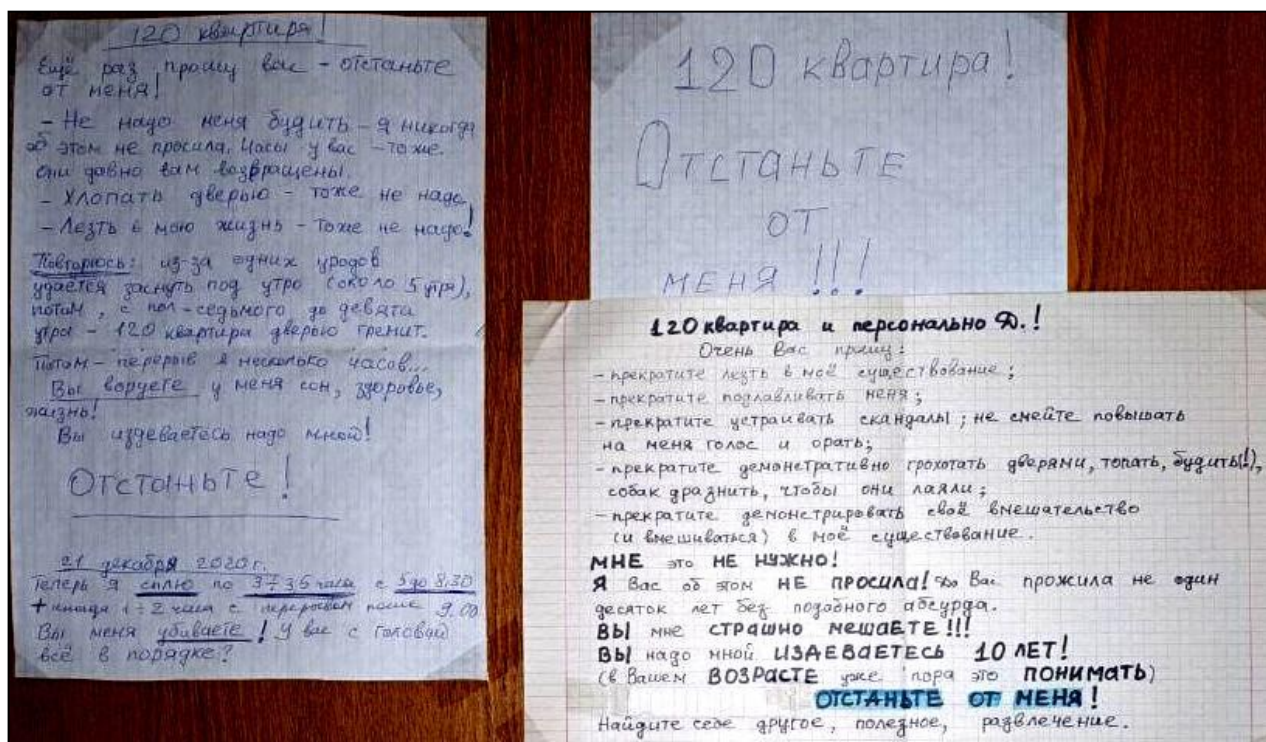 120 квартира!
Ещё раз прошу вас – отстаньте
от меня!
– Не надо меня будить – я никогда
об этом не просила. Часы у вас – тоже.
Они давно вам возвращены.
– Хлопать дверью – тоже не надо
– Лезть в мою жизнь – тоже не надо!
Повторюсь: из-за одних уродов
удаётся заснуть под утро (около 5 утра),
потом, с пол-седьмого до девяти
утра – 120 квартира дверью гремит.
Потом – перерыв в несколько часов...
Вы воруете у меня сон, здоровье,
жизнь!
Вы издеваетесь надо мной!
Отстаньте!
21 декабря 2020 г.
Теперь я сплю по 3÷3,5 часа с 5 до 8.30
+ иногда 1÷2 часа с перерывом после 9.00
Вы меня убиваете! У вас с головой
всё в порядке?
120 квартира!
Отстаньте
от
меня!!!
120 квартира и персонально Д.!
Очень Вас прошу:
– прекратите лезть в моё существование;
– прекратите подлавливать меня;
– прекратите устраивать скандалы; не смейте повышать
на меня голос и орать;
– прекратите демонстративно грохотать дверями, топать, будить(!),
собак дразнить, чтобы они лаяли;
– прекратите демонстрировать своё вмешательство
(и вмешиваться) в моё существование.
МНЕ это НЕ НУЖНО!
Я Вас об этом НЕ ПРОСИЛА! До Вас прожила не один
десяток лет без подобного абсурда.
ВЫ мне СТРАШНО МЕШАЕТЕ!!!
ВЫ надо мной ИЗДЕВАЕТЕСЬ 10 ЛЕТ!
(в Вашем ВОЗРАСТЕ уже пора это ПОНИМАТЬ)
ОТСТАНЬТЕ ОТ МЕНЯ!
Найдите себе другое, полезное, развлечение.